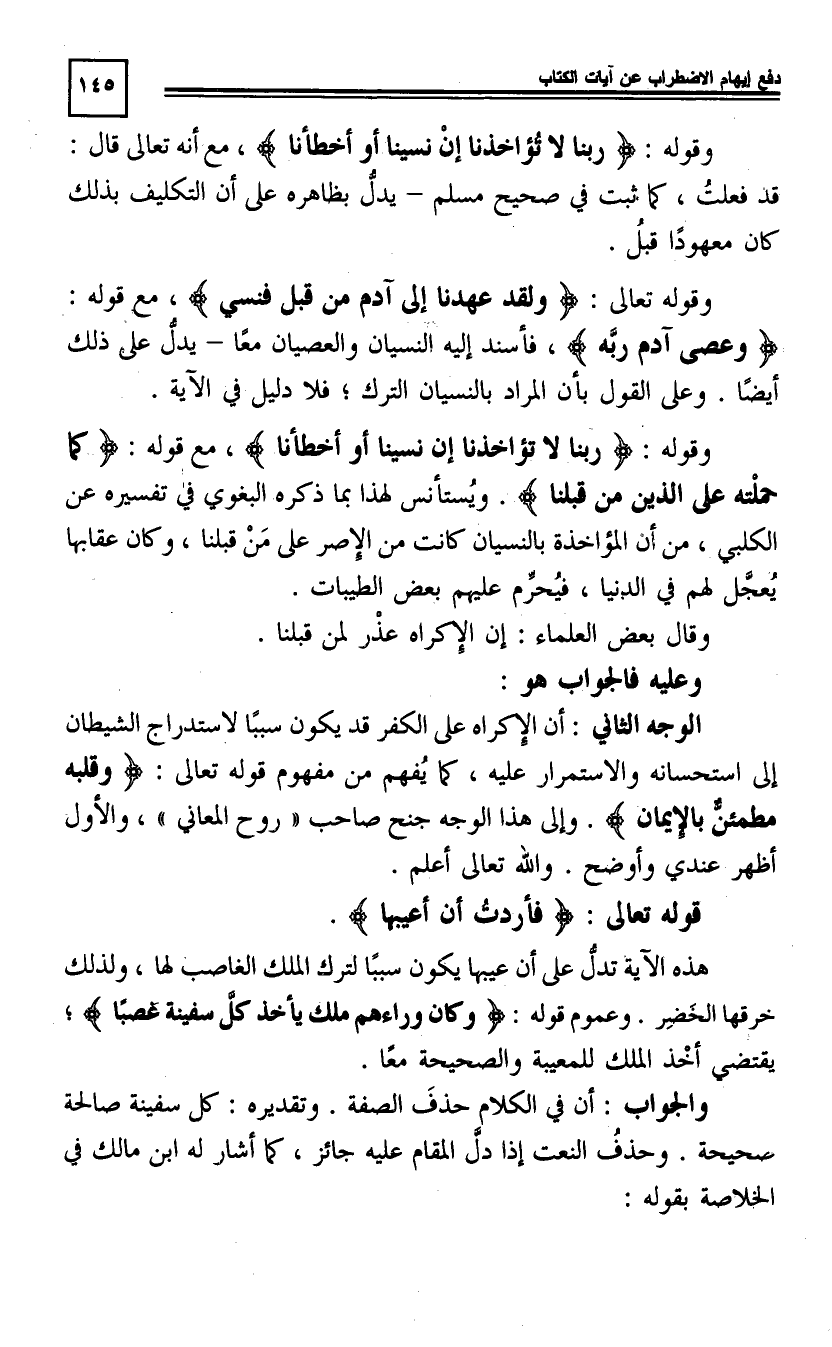 دفع إيهام الاضطراب عن آيات الكتاب
١٤٥
وقوله : ﴿ ربنا لا تُؤاخذنا إنْ نسينا أو أخطأنا ﴾ ، مع أنه تعالى قال :
قد فعلتُ ، كما ثبت في صحيح مسلم – يدلُّ بظاهره على أن التكليف بذلك
كان معهودًا قبلُ .
وقوله تعالى : ﴿ ولقد عهدنا إلى آدم من قبل فنسي ﴾ ، مع قوله :
﴿ وعصى آدم ربَّه ﴾ ، فأسند إليه النسيان والعصيان معًا – يدلُّ على ذلك
أيضًا . وعلى القول بأن المراد بالنسيان الترك ؛ فلا دليل في الآية .
وقوله : ﴿ ربنا لا تؤاخذنا إن نسينا أو أخطأنا ﴾ ، مع قوله : ﴿ كما
حملْته على الذين من قبلنا ﴾ . ويُستأنس لهذا بما ذكره البغوي في تفسيره عن
الكلبي ، من أن المؤاخذة بالنسيان كانت من الإصر على مَنْ قبلنا ، وكان عقابها
يُعجَّل لهم في الدنيا ، فيُحرَّم عليهم بعض الطيبات .
وقال بعض العلماء : إن الإكراه عذْر لمن قبلنا .
وعليه فالجواب هو :
الوجه الثاني : أن الإكراه على الكفر قد يكون سببًا لاستدراج الشيطان
إلى استحسانه والاستمرار عليه ، كما يُفهم من مفهوم قوله تعالى : ﴿ وقلبه
مطمئنٌّ بالإيمان ﴾ . وإلى هذا الوجه جنح صاحب « روح المعاني » ، والأول
أظهر عندي وأوضح . والله تعالى أعلم .
قوله تعالى : ﴿ فأردتُ أن أعيبها ﴾ .
هذه الآية تدلُّ على أن عيبها يكون سببًا لترك الملك الغاصب لها ، ولذلك
خرقها الخَضِر . وعموم قوله : ﴿ وكان وراءهم ملك يأخذ كلَّ سفينة غصبًا ﴾ ؛
يقتضي أخْذ الملك للمعيبة والصحيحة معًا .
والجواب : أن في الكلام حذفَ الصفة . وتقديره : كل سفينة صالحة
صحيحة . وحذفُ النعت إذا دلَّ المقام عليه جائز ، كما أشار له ابن مالك في
الخلاصة بقوله :